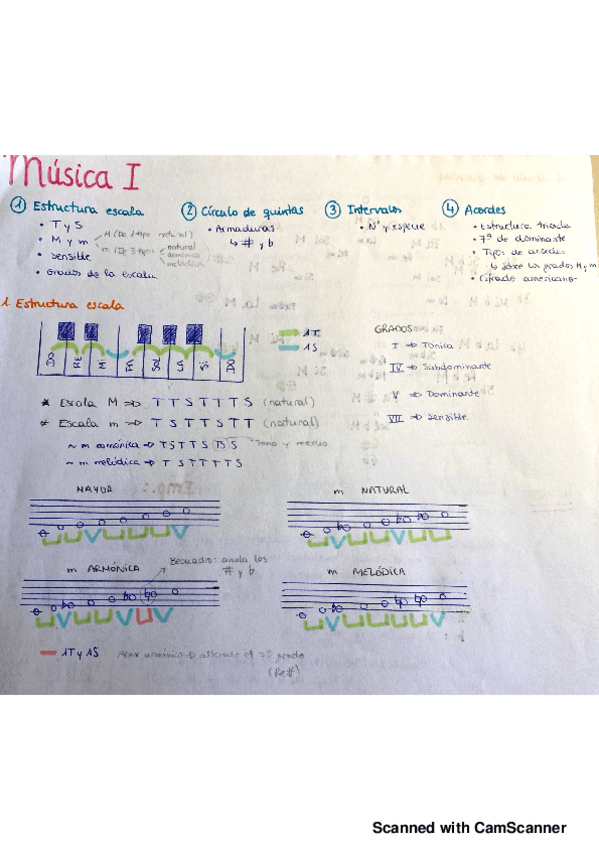 Música I
1 Estructura escala
• T y S
• M y m
M (De 1 tipo natural)
m (De 3 tipos)
natural
armónica
melódica
• Sensible
• Grados de la escala
2 Círculo de quintas
• Armaduras
↳ # y b
3 Intervalos
• Nº y especie
4 Acordes
• Estructura triada
• 7ª de dominante
• Tipos de acordes
↳ sobre los grados M y m
• Cifrado americano
1. Estructura escala
DO RE MI FA SOL LA SI DO
1T
1S
GRADOS
I → Tónica
IV → Subdominante
V → Dominante
VII → Sensible
* Escala M ⇒ T T S T T T S (natural)
* Escala m ⇒ T S T T S T T (natural)
~ m armónica → T S T T S TS S Tono y medio
~ m melódica → T S T T T T S
MAYOR
m NATURAL
m ARMÓNICA
Becuadro: anula los
# y b
m MELÓDICA
1T y 1S
armónica → alterado el 7º grado